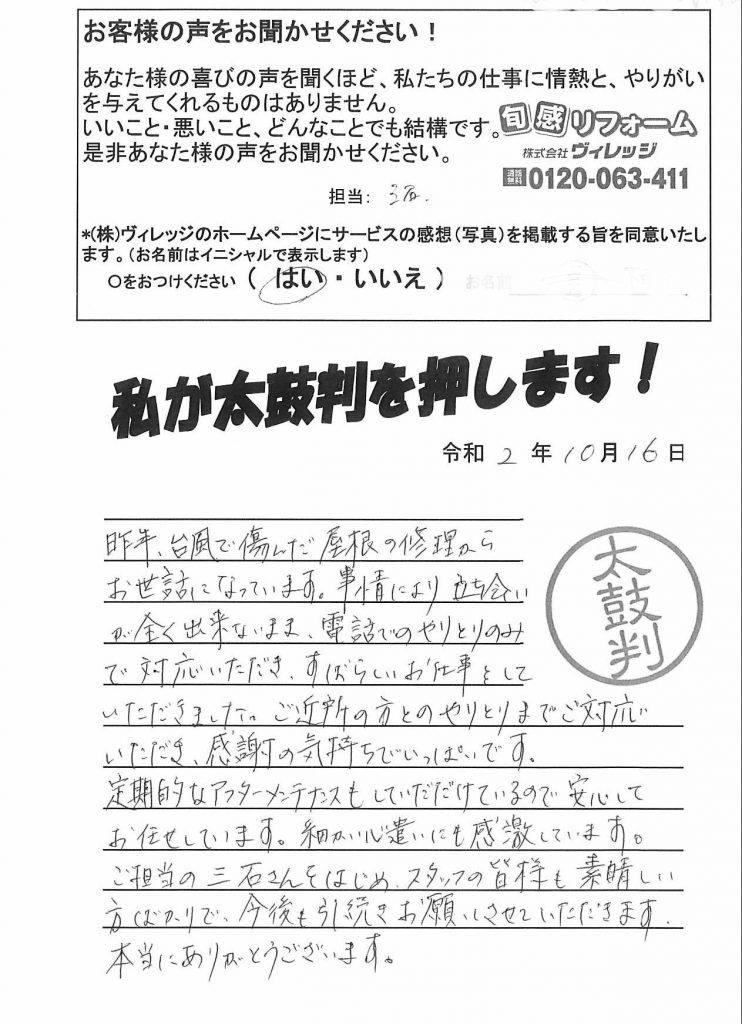 お客様の声をお聞かせください！
あなた様の喜びの声を聞くほど、私たちの仕事に情熱と、やりがい
を与えてくれるものはありません。
いいこと・悪いこと、どんなことでも結構です。
是非あなた様の声をお聞かせください。
旬感リフォーム
株式会社ヴィレッジ
通話無料 0120-063-411
担当: 三石.
*(株)ヴィレッジのホームページにサービスの感想(写真)を掲載する旨を同意いたし
ます。(お名前はイニシャルで表示します)
○をおつけください ( はい・いいえ ) お名前
私が太鼓判を押します！
令和 2 年 10月 16日
昨年、台風で傷んだ屋根の修理から
お世話になっています。事情により立ち会い
が全く出来ないまま、電話でのやりとりのみ
で対応いただき、すばらしいお仕事をして
いただきました。ご近所の方とのやりとりまでご対応
いただき、感謝の気持ちでいっぱいです。
定期的なアフターメンテナンスもしていただけているので安心して
お任せしています。細かい心遣いにも感激しています。
ご担当の三石さんをはじめ、スタッフの皆様も素晴しい
方ばかりで、今後も引続きお願いさせていただきます.
本当にありがとうございます。
太鼓判